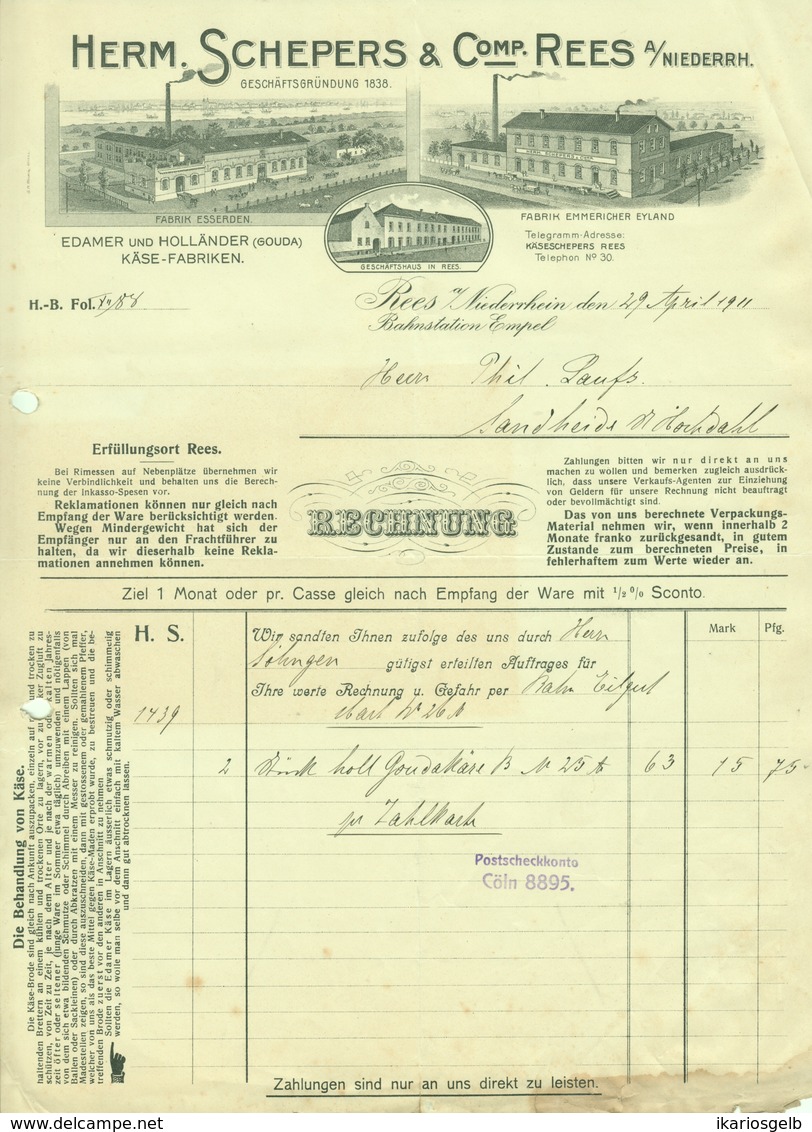 HERM. SCHEPERS & COMP. REES A/NIEDERRH.
GESCHÄFTSGRÜNDUNG 1838.
FABRIK ESSERDEN.
FABRIK EMMERICHER EYLAND
EDAMER UND HOLLÄNDER (GOUDA)
KÄSE-FABRIKEN.
GESCHÄFTSHAUS IN REES.
Telegramm-Adresse:
KÄSESCHEPERS REES
Telephon No 30.
H.-B. Fol. 88
Rees a/Niederrhein den 29 April 1911
Bahnstation Empel
Herrn Phil. Laufs.
Sandheide b/Hochdahl
Erfüllungsort Rees.
Bei Rimessen auf Nebenplätze übernehmen wir
keine Verbindlichkeit und behalten uns die Berech-
nung der Inkasso-Spesen vor.
Reklamationen können nur gleich nach
Empfang der Ware berücksichtigt werden.
Wegen Mindergewicht hat sich der
Empfänger nur an den Frachtführer zu
halten, da wir dieserhalb keine Rekla-
mationen annehmen können.
RECHNUNG
Zahlungen bitten wir nur direkt an uns
machen zu wollen und bemerken zugleich ausdrück-
lich, dass unsere Verkaufs-Agenten zur Einziehung
von Geldern für unsere Rechnung nicht beauftragt
oder bevollmächtigt sind.
Das von uns berechnete Verpackungs-
Material nehmen wir, wenn innerhalb 2
Monate franko zurückgesandt, in gutem
Zustande zum berechneten Preise, in
fehlerhaftem zum Werte wieder an.
Ziel 1 Monat oder pr. Casse gleich nach Empfang der Ware mit 1/2 % Sconto.
H. S.
Mark Pfg.
Wir sandten Ihnen zufolge des uns durch Herrn
Söhngen gütigst erteilten Auftrages für
Ihre werte Rechnung u. Gefahr per Bahn Eilgut
1439
2 Stück holl Goudakäse B 25 63 15 75
per Zahlkarte
Postscheckkonto
Cöln 8895.
Die Behandlung von Käse.
Die Käse-Brode sind gleich nach Ankunft auszupacken, einzeln auf und trocken zu
haltenden Brettern an einem kühlen und trockenen Orte zu lagern, vor zu ker Zugluft zu
schützen, von Zeit zu Zeit, je nach dem Alter und je nach der warmen oder kalten Jahres-
zeit öfter oder seltener (junge Ware im Sommer etwa täglich) umzuwenden und nötigenfalls
von dem sich etwa bildenden Schmutze oder Schimmel durch Abreiben mit einem Lappen (von
Ballen oder Sackleinen) oder durch Abkratzen mit einem Messer zu reinigen. Sollten sich mal
Madestellen zeigen, so sind diese auszuschneiden, dann mit gestossenem oder gemahlenem Pfeffer,
welcher von uns als das beste Mittel gegen Käse-Maden erprobt wurde, zu bestreuen und die be-
treffenden Brode zuerst vor den anderen in Anschnitt zu nehmen
Sollten die Edamer Käse im Lagern äusserlich etwas schmutzig oder schimmelig
werden, so wolle man selbe vor dem Anschnitt einfach mit kaltem Wasser abwaschen
und dann gut abtrocknen lassen.
Zahlungen sind nur an uns direkt zu leisten.
ikariosgelb